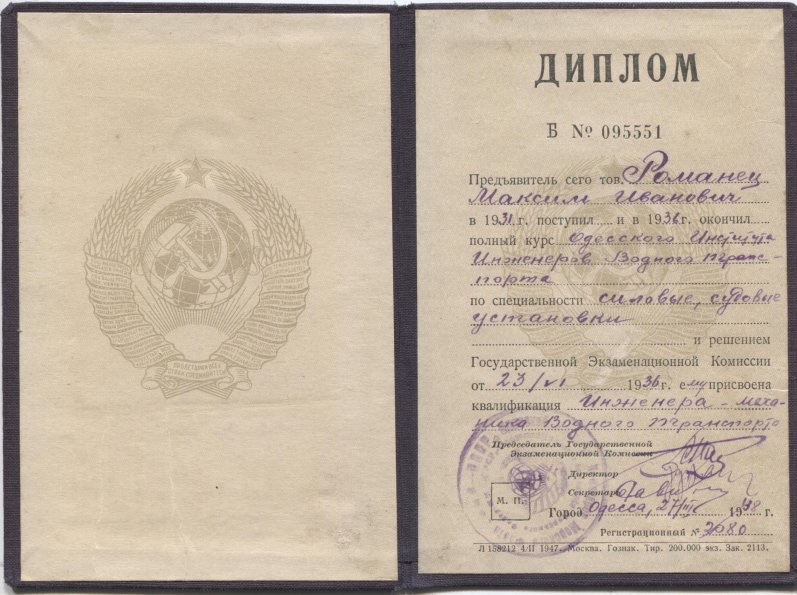 ДИПЛОМ
Б № 095551
Предъявитель сего тов. Романец
Максим Иванович
в 1931 г. поступил и в 1936 г. окончил
полный курс Одесского Института
Инженеров Водного транс-
порта
по специальности силовые, судовые
установки
и решением
Государственной Экзаменационной Комиссии
от 23/VI 1936 г. ему присвоена
квалификация Инженера-меха-
ника Водного транспорта
Председатель Государственной
Экзаменационной Комиссии
Директор
Секретарь
М. П.
Город Одесса, 27/III 1948 г.
Регистрационный №
Л 158212 4/II 1947. Москва. Гознак. Тир. 200.000 экз. Зак. 2113.